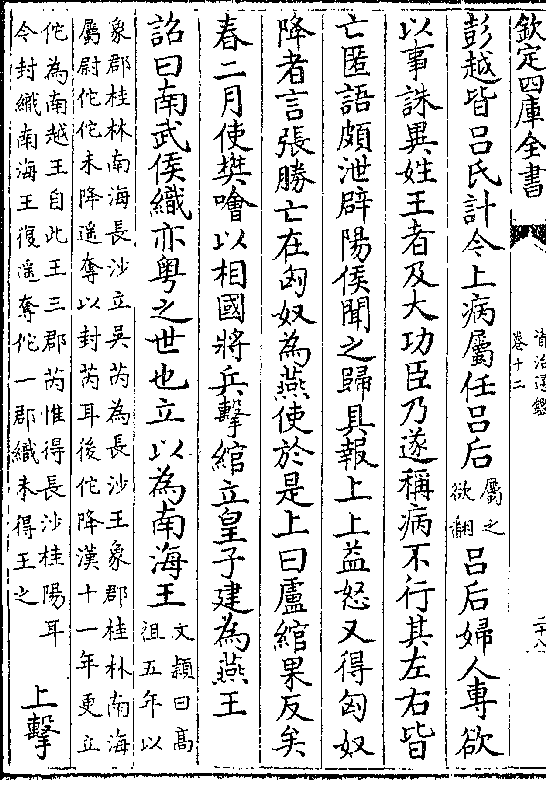 欽定四庫全書
資治通鑑
卷十二
二十八
彭越皆呂氏計令上病屬任呂后屬之欲翻呂后婦人専欲
以事誅異姓王者及大功臣乃遂稱病不行其左右皆
亡匿語頗泄辟陽侯聞之歸具報上上益怒又得匈奴
降者言張勝亡在匈奴為燕使於是上曰盧綰果反矣
春二月使樊噲以相國將兵擊綰立皇子建為燕王
詔曰南武侯織亦粤之世也立以為南海王文頴曰髙
祖五年以
象郡桂林南海長沙立吳芮為長沙王象郡桂林南海
屬尉佗佗未降遥奪以封芮耳後佗降漢十一年更立
佗為南越王自此王三郡芮惟得長沙桂陽耳
令封織南海王復遥奪佗一郡織未得王之
上擊